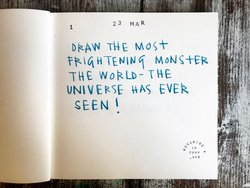 1 23 MAR
DRAW THE MOST
FRIGHTENING MONSTER
THE WORLD - THE
UNIVERSE HAS EVER
SEEN!